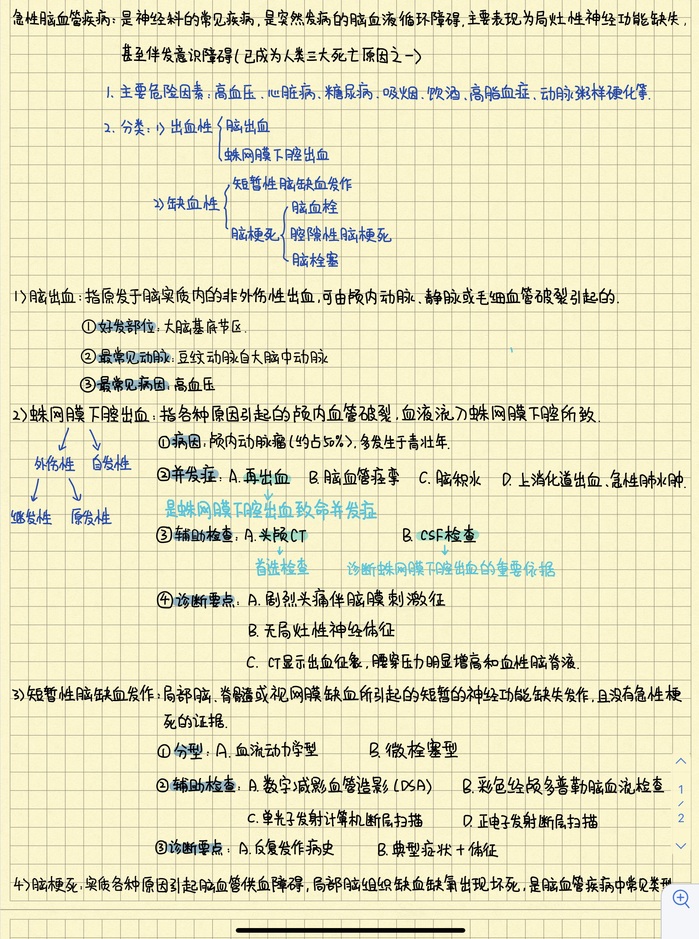 急性脑血管疾病：是神经科的常见疾病，是突然发病的脑血液循环障碍，主要表现为局灶性神经功能缺失，
甚至伴发意识障碍（已成为人类三大死亡原因之一）
1. 主要危险因素：高血压、心脏病、糖尿病、吸烟、饮酒、高脂血症、动脉粥样硬化等.
2. 分类：1）出血性 脑出血
蛛网膜下腔出血
2）缺血性 短暂性脑缺血发作
脑梗死 脑血栓
腔隙性脑梗死
脑栓塞
1）脑出血：指原发于脑实质内的非外伤性出血，可由颅内动脉、静脉或毛细血管破裂引起的.
①好发部位：大脑基底节区.
②最常见动脉：豆纹动脉自大脑中动脉
③最常见病因：高血压
2）蛛网膜下腔出血：指各种原因引起的颅内血管破裂，血液流入蛛网膜下腔所致.
外伤性 自发性
继发性 原发性
①病因：颅内动脉瘤（约占50%），多发生于青壮年.
②并发症：A.再出血 B.脑血管痉挛 C.脑积水 D.上消化道出血、急性肺水肿.
是蛛网膜下腔出血致命并发症
③辅助检查：A.头颅CT B.CSF检查
首选检查 诊断蛛网膜下腔出血的重要依据
④诊断要点：A.剧烈头痛伴脑膜刺激征
B.无局灶性神经体征
C.CT显示出血征象，腰穿压力明显增高和血性脑脊液.
3）短暂性脑缺血发作：局部脑、脊髓或视网膜缺血所引起的短暂的神经功能缺失发作，且没有急性梗
死的证据.
①分型：A.血流动力学型 B.微栓塞型
②辅助检查：A.数字减影血管造影（DSA） B.彩色经颅多普勒脑血流检查
C.单光子发射计算机断层扫描 D.正电子发射断层扫描
③诊断要点：A.反复发作病史 B.典型症状+体征
4）脑梗死：实质各种原因引起脑血管供血障碍，局部脑组织缺血缺氧出现坏死，是脑血管疾病中常见类型
1
/
2